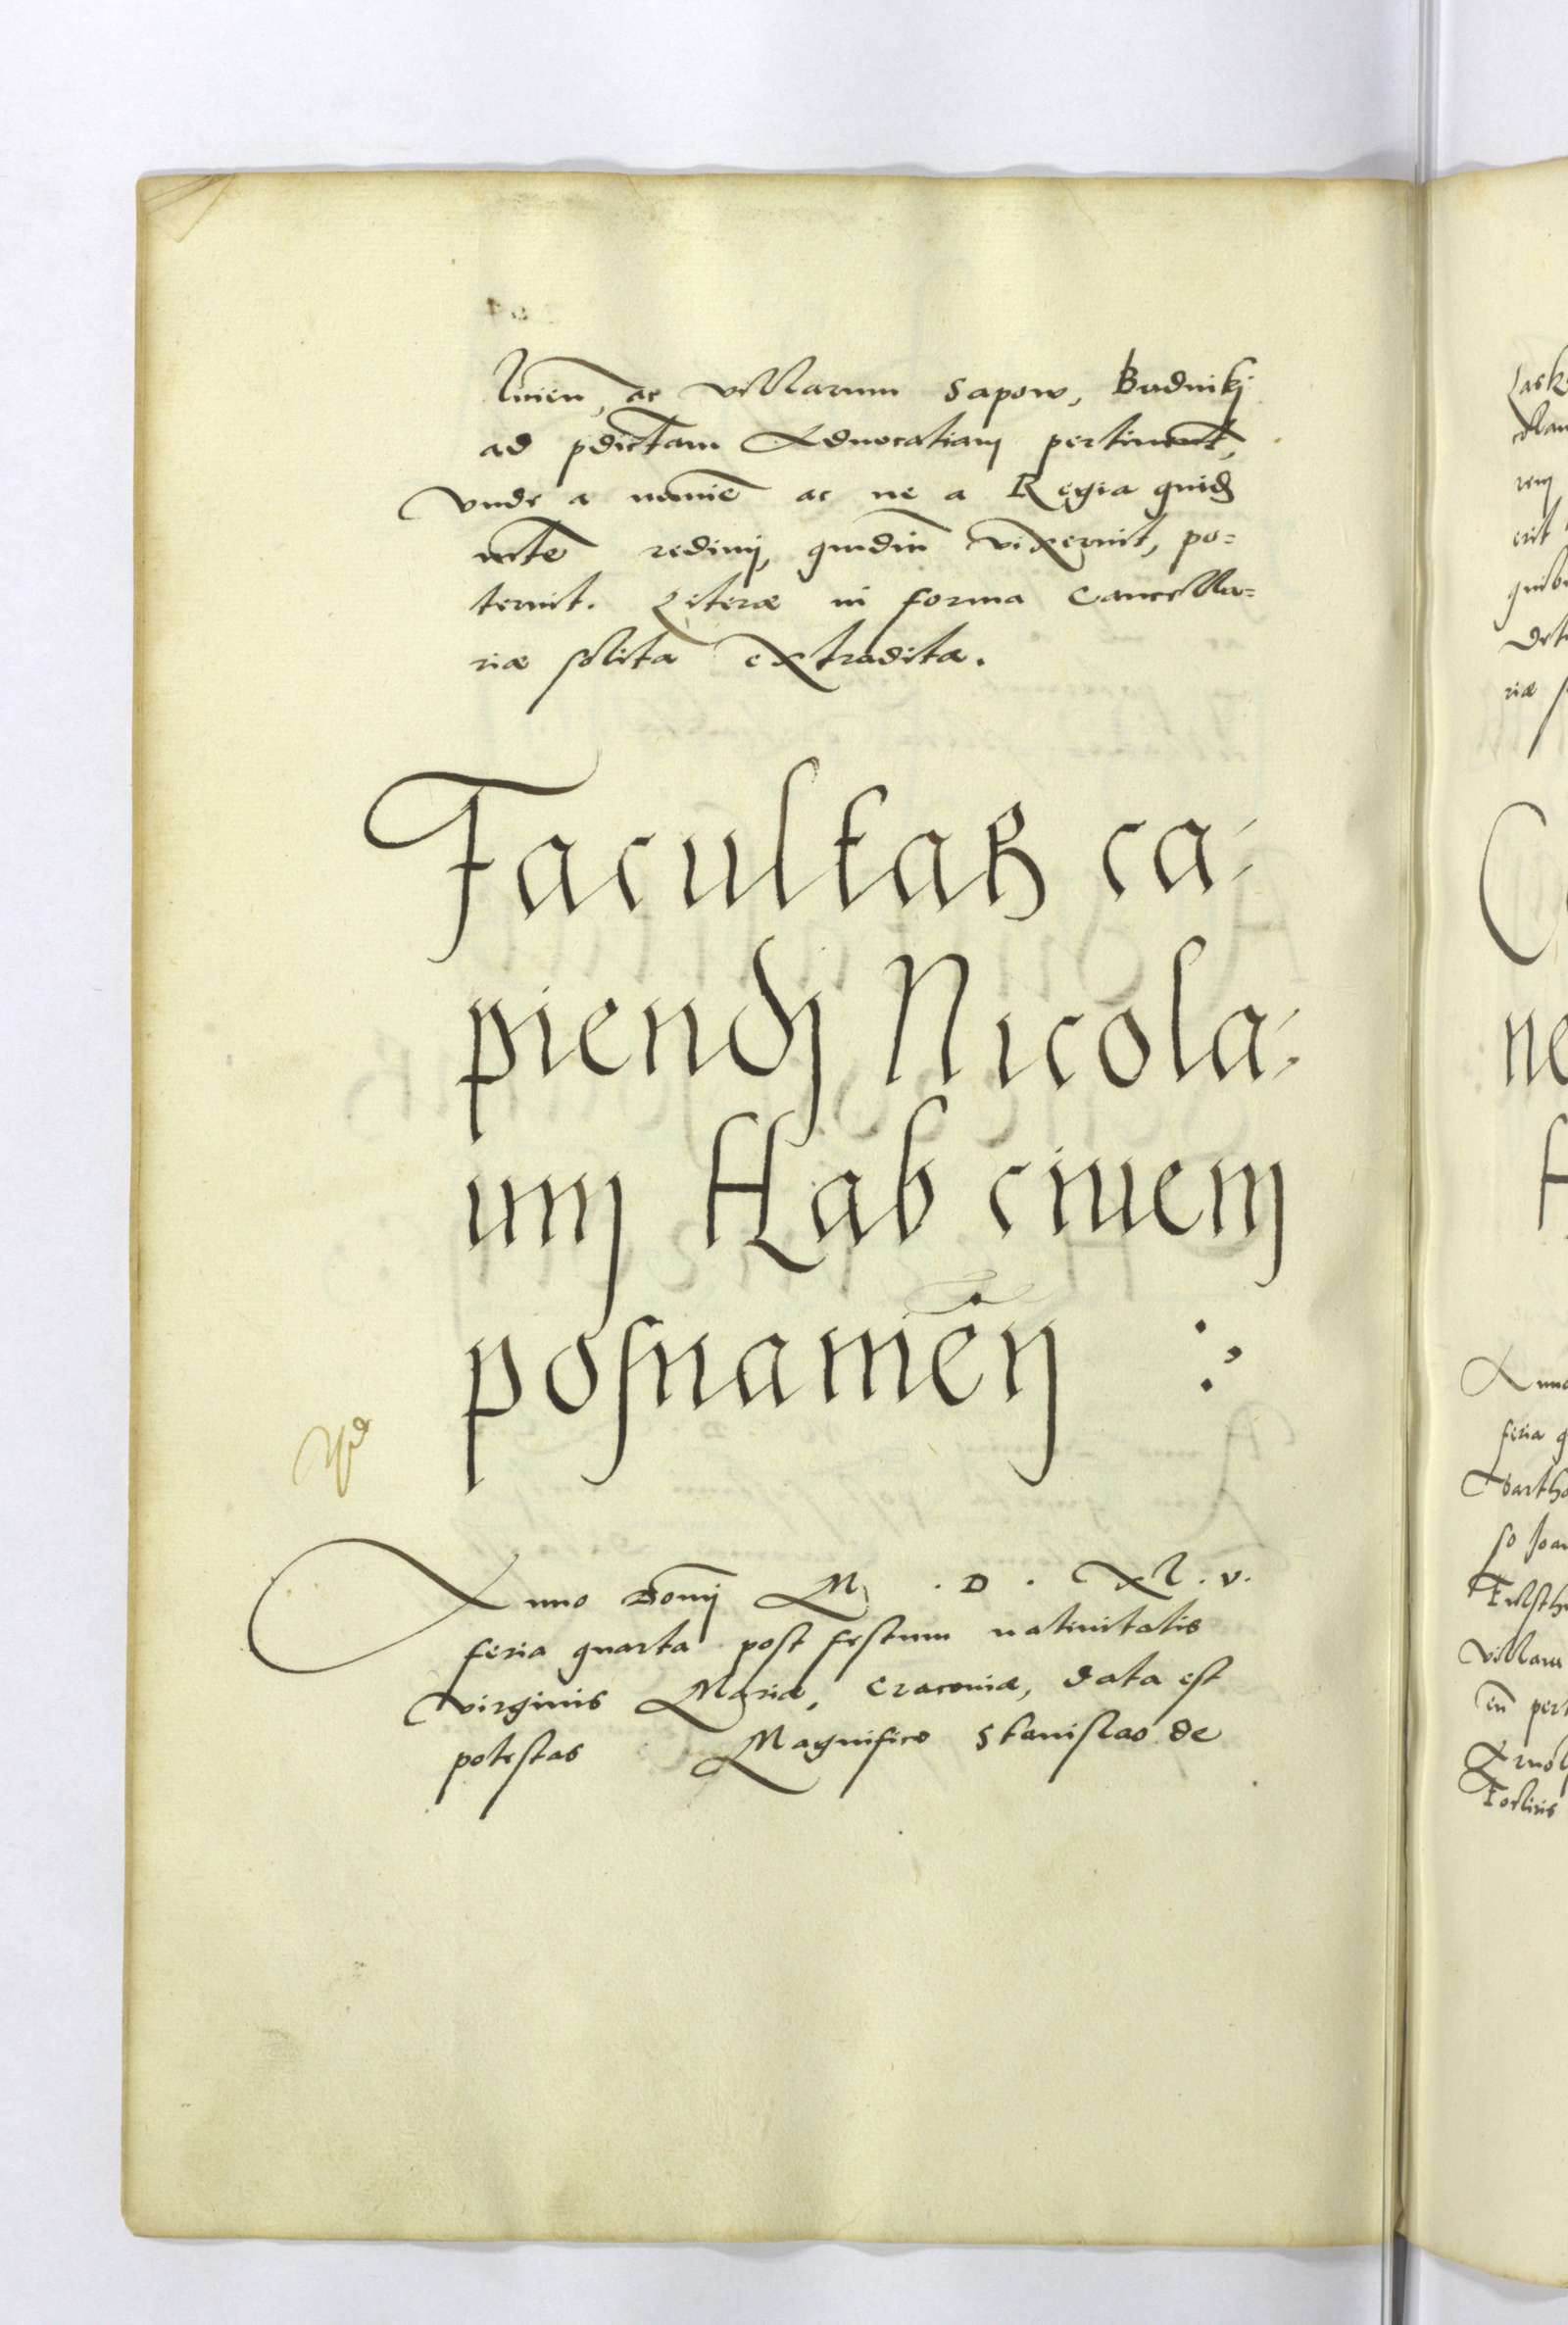 linień, ac villarum Sapow, Budnikj
ad pdictam Aduocatiam pertinent,
vnde a nemiē ac ne a Regia quidē
mte redimj, quādiu vixerint, po=
terint. Literæ in forma Cancella=
riæ solita extraditæ.
Facultas ca-
piendj Nicola-
um Hab ciuem
posnameń
Anno Domj M . D . XL . v.
feria quarta post festum natiuitatis
virginis Mariæ, Cracouiæ, data est
potestas Magnifico Stanislao de
Lask
rem
erit
riæ
ne
H
Anno
feria q
Bartho
so Joan
villam
eń pert